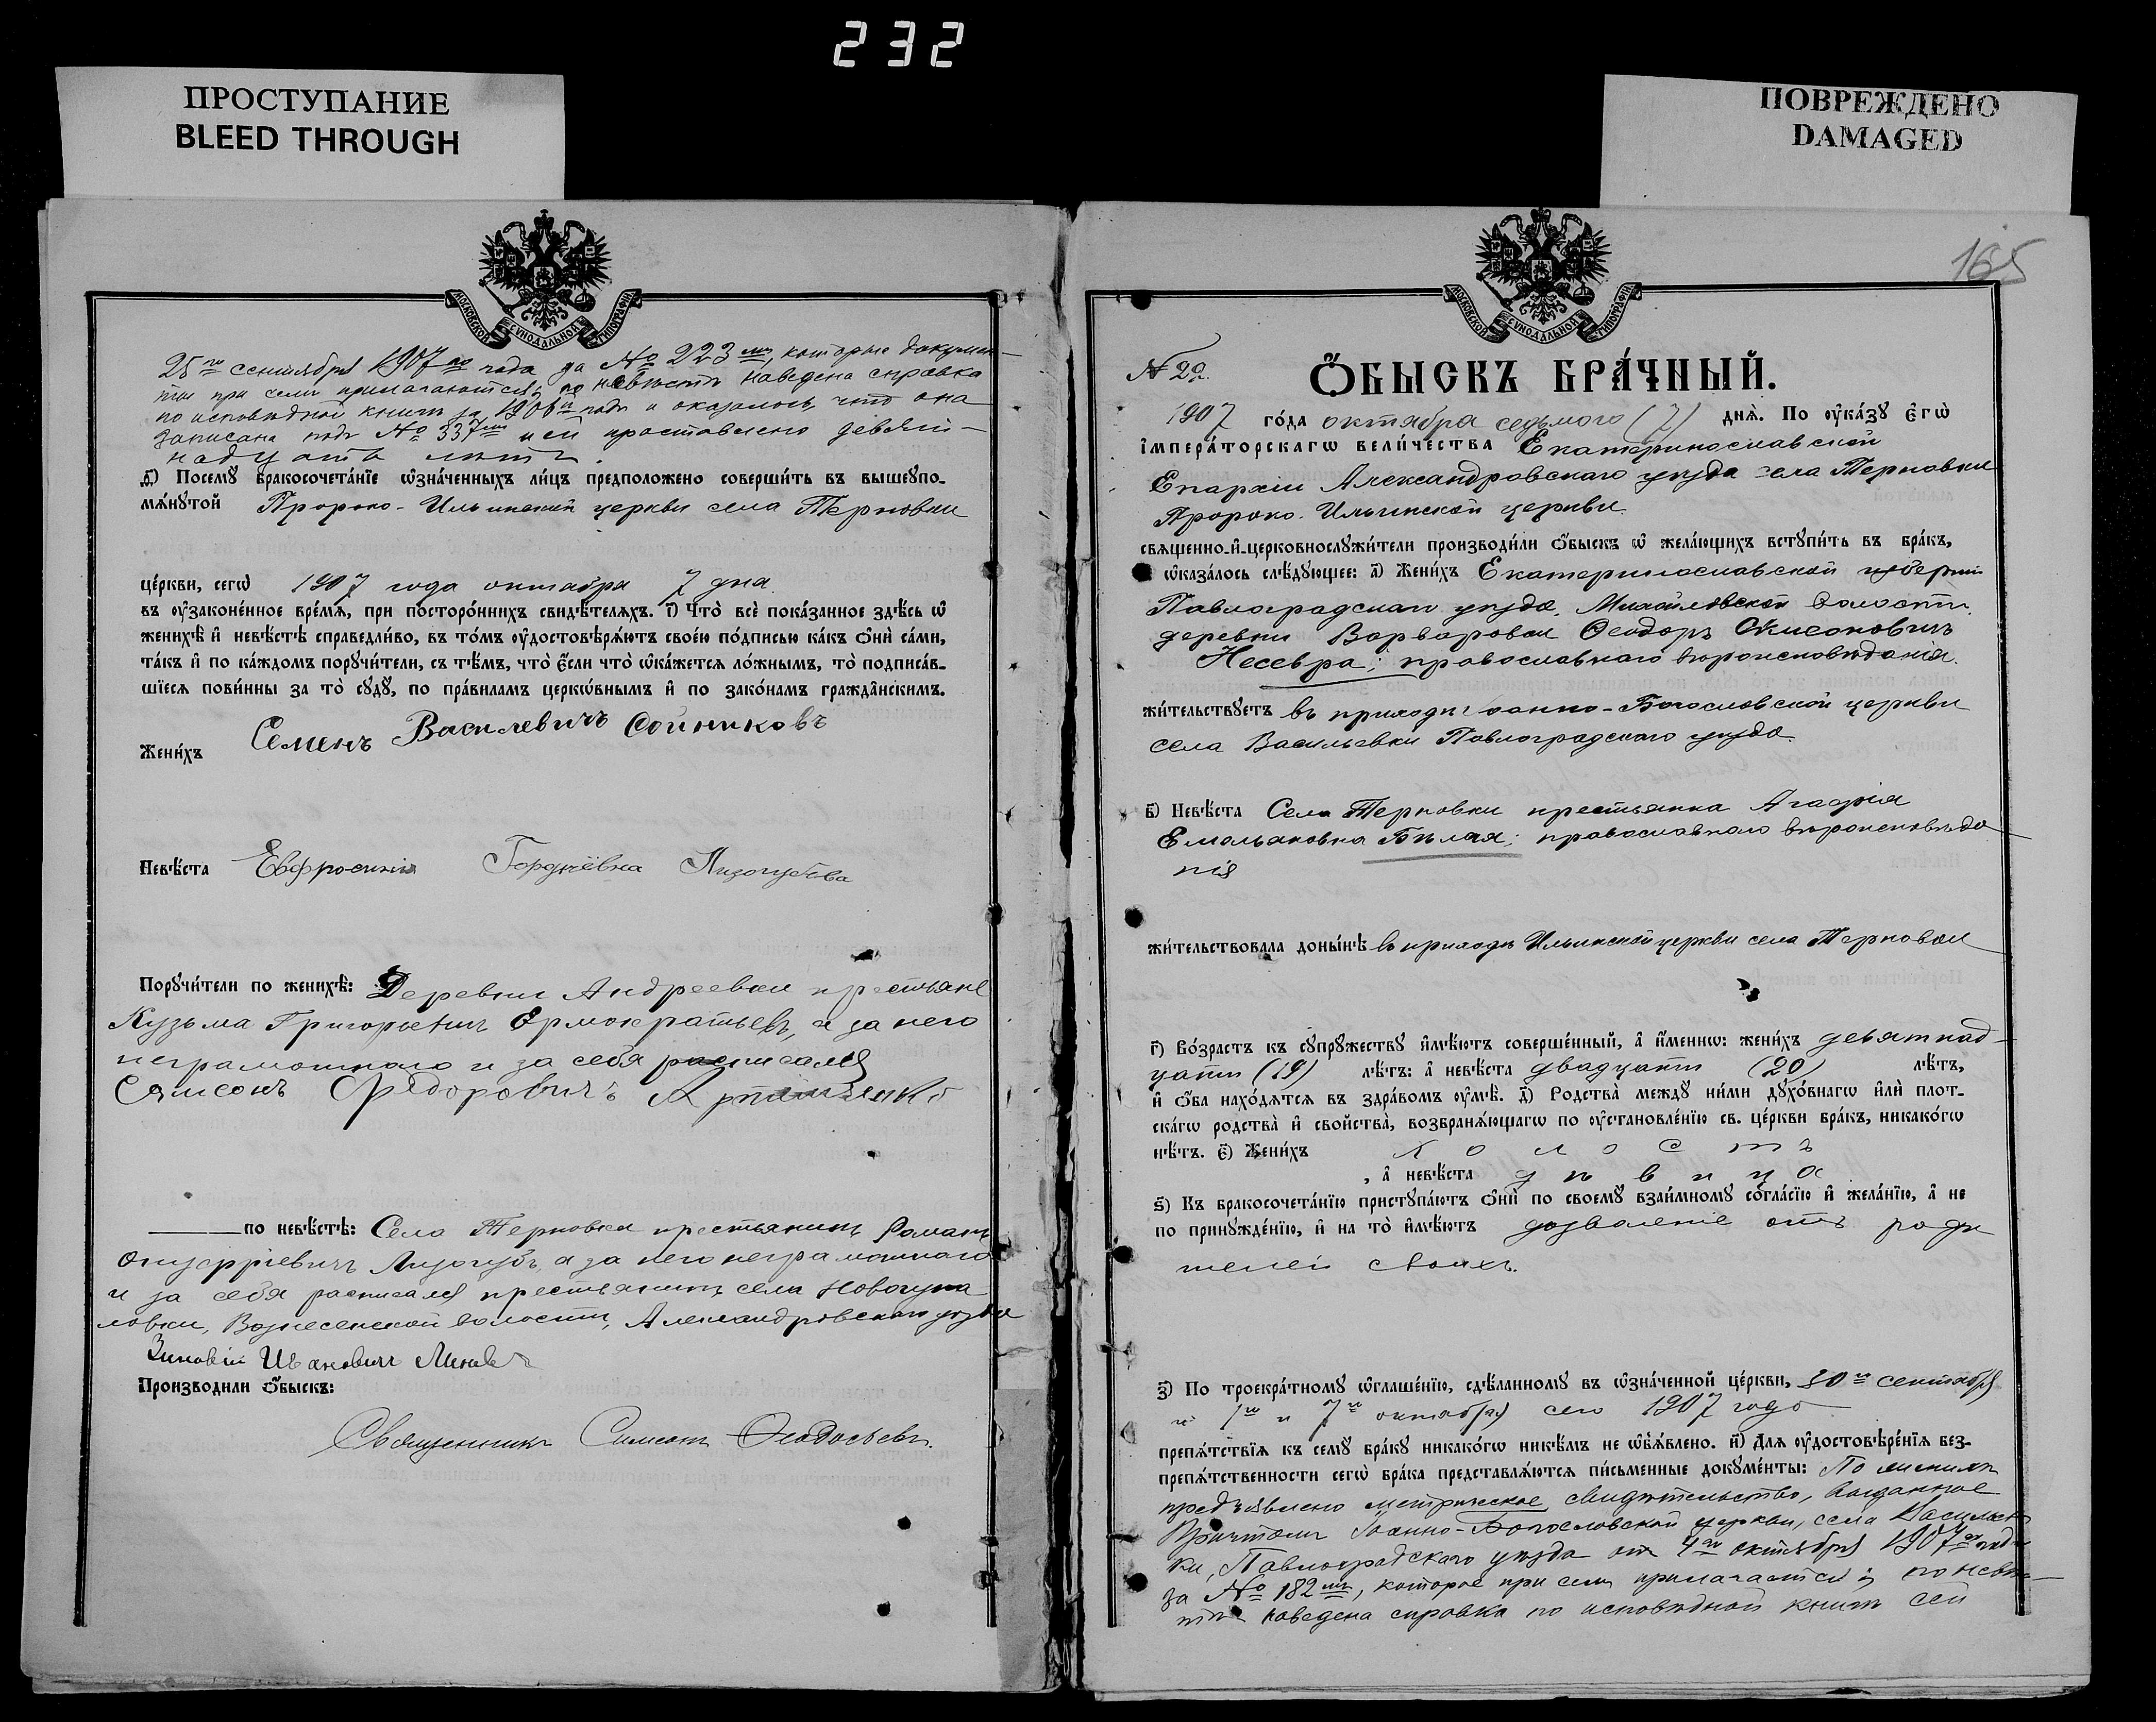 232
ПРОСТУПАНИЕ
BLEED THROUGH
ПОВРЕЖДЕНО
DAMAGED
МОСКОВСКОЙ СѴНОДАЛЬНОЙ ТИПОГРАФІИ
25го сентября 1907го года за № 223мъ, которые докумен-
ты при семъ прилагаются; по невѣстѣ наведена справка
по исповѣдной книгѣ за 1906й годъ и оказалось, что она
записана подъ № 337мъ и ей проставлено девят-
надцать лѣтъ.
Ѳ҃) Посемꙋ бракосочета́нїе ѡ҆зна́ченныхъ ли́цъ предположено соверши́ть въ вышеꙋпо-
мѧ́нꙋтой Пророко-Ильинской церкви села Терновки
це́ркви, сегѡ̀ 1907 года октября 7 дня
въ ᲂу҆законе́нное вре́мѧ, при посторо́ннихъ свидѣ́телѧхъ. і҃) Что̀ всѐ пока́занное здѣ́сь ѡ҆
женихѣ̀ и҆ невѣ́стѣ справедли́во, въ то́мъ ᲂу҆достовѣрѧ́ютъ свое́ю по́дписью ка́къ ѻ҆нѝ са́ми,
та́къ и҆ по ка́ждомъ порꙋчи́тели, съ тѣ́мъ, что̀ є҆́сли что̀ ѡ҆ка́жетсѧ ло́жнымъ, то̀ подписа́в-
шїесѧ пови́нны за то̀ сꙋдꙋ̀, по пра́виламъ церкѡ́внымъ и҆ по зако́намъ гражда̑нскимъ.
Жени́хъ Семенъ Василевичъ Сойниковъ
Невѣ́ста Евфросинія Гордѣевна Лизогубова
Порꙋчи́тели по женихѣ̀: Деревни Андреевки крестьяне
Кузьма Григорьевичъ Ермократьевъ, а за него
неграмотнаго и за себя расписался
Самсонъ Федоровичъ
по невѣ́стѣ: Села Терновки крестьянинъ Романъ
Онуфріевичъ Лизогубъ, а за него неграмотнаго
и за себя расписался крестьянинъ села Новогупа
ловки, Вознесенской волости, Александровскаго уѣзда
Зиновій Ивановичъ
Производили ѻ҆́быскъ:
Священникъ Симеонъ Ѳеодосьевъ.
165
МОСКОВСКОЙ СѴНОДАЛЬНОЙ ТИПОГРАФІИ
№ 29.
Ѻ҆́БЫСКЪ БРА́ЧНЫЙ.
1907 го́да октября седьмого (7) днѧ̀. По ᲂу҆ка́зꙋ є҆гѡ̀
і҆мпера́торскагѡ вели́чества Екатеринославской
Епархіи Александровскаго уѣзда села Терновки
Пророко-Ильинской церкви
свѧщенно-и҆-церковнослꙋжи́тели производи́ли ѻ҆́быскъ ѡ҆ жела́ющихъ встꙋпи́ть въ бра́къ,
и ѡ҆каза́лось слѣ́дꙋющее: а҃) Жени́хъ Екатеринославской губерніи
Павлоградскаго уѣзда, Михайловской волости
деревни Варваровки Ѳеодоръ
Несевра; православнаго вѣроисповѣданія.
жи́тельствꙋетъ въ приходѣ Іоанно-Богословской церкви
села Васильевки Павлоградскаго уѣзда.
в҃) Невѣ́ста Села Терновки крестьянка Агафія
Емельяновна Бѣлая; православнаго вѣроисповѣда
нія
жи́тельствовала доны́нѣ въ приходѣ Ильинской церкви села Терновки
г҃) Во́зрастъ къ сꙋпрꙋ́жествꙋ и҆мѣ́ютъ соверше́нный, а҆ и҆́меннѡ: жени́хъ девятнад-
цати (19) лѣ́тъ: а҆ невѣ́ста двадцати (20) лѣ́тъ,
и҆ ѻ҆́ба нахо́дѧтсѧ въ здра́вомъ ᲂу҆мѣ̀. д҃) Родства̀ междꙋ ни́ми дꙋхо́внагѡ и҆лѝ плот-
ска́гѡ родства̀ и҆ свойства̀, возбранѧ́ющагѡ по ᲂу҆становле́нїю св. це́ркви бра́къ, никако́гѡ
нѣ́тъ. є҃) Жени́хъ холостъ
, а҆ невѣ́ста дѣвица
ѕ҃) Къ бракосочета́нїю пристꙋпа́ютъ ѻ҆нѝ по своемꙋ̀ взаи́мномꙋ согла́сїю и҆ жела́нїю, а҆ не
по принꙋжде́нїю, и҆ на то̀ и҆мѣ́ютъ дозволеніе отъ роди
телей своихъ.
з҃) По троекра́тномꙋ ѡ҆глаше́нїю, сдѣ́ланномꙋ въ ѡ҆зна́ченной це́ркви, 30го сентября
и 1го и 7го октября сего 1907 года
препѧ́тствїѧ къ семꙋ̀ бра́кꙋ никако́гѡ никѣ́мъ не ѡ҆б̾ѧ́влено. и҃) Длѧ ᲂу҆достовѣ́ренїѧ без-
препѧ́тственности сегѡ̀ бра́ка представлѧ́ютсѧ пи́сьменные докꙋме́нты: По женихѣ
предъявлено метрическое свидѣтельство, выданное
Причтомъ Іоанно-Богословской церкви, села Василье
ки, Павлоградскаго уѣзда отъ 4го октября 1907го года
за № 182мъ, которое при семъ прилагается; по невѣ-
стѣ наведена справка по исповѣдной книгѣ сей